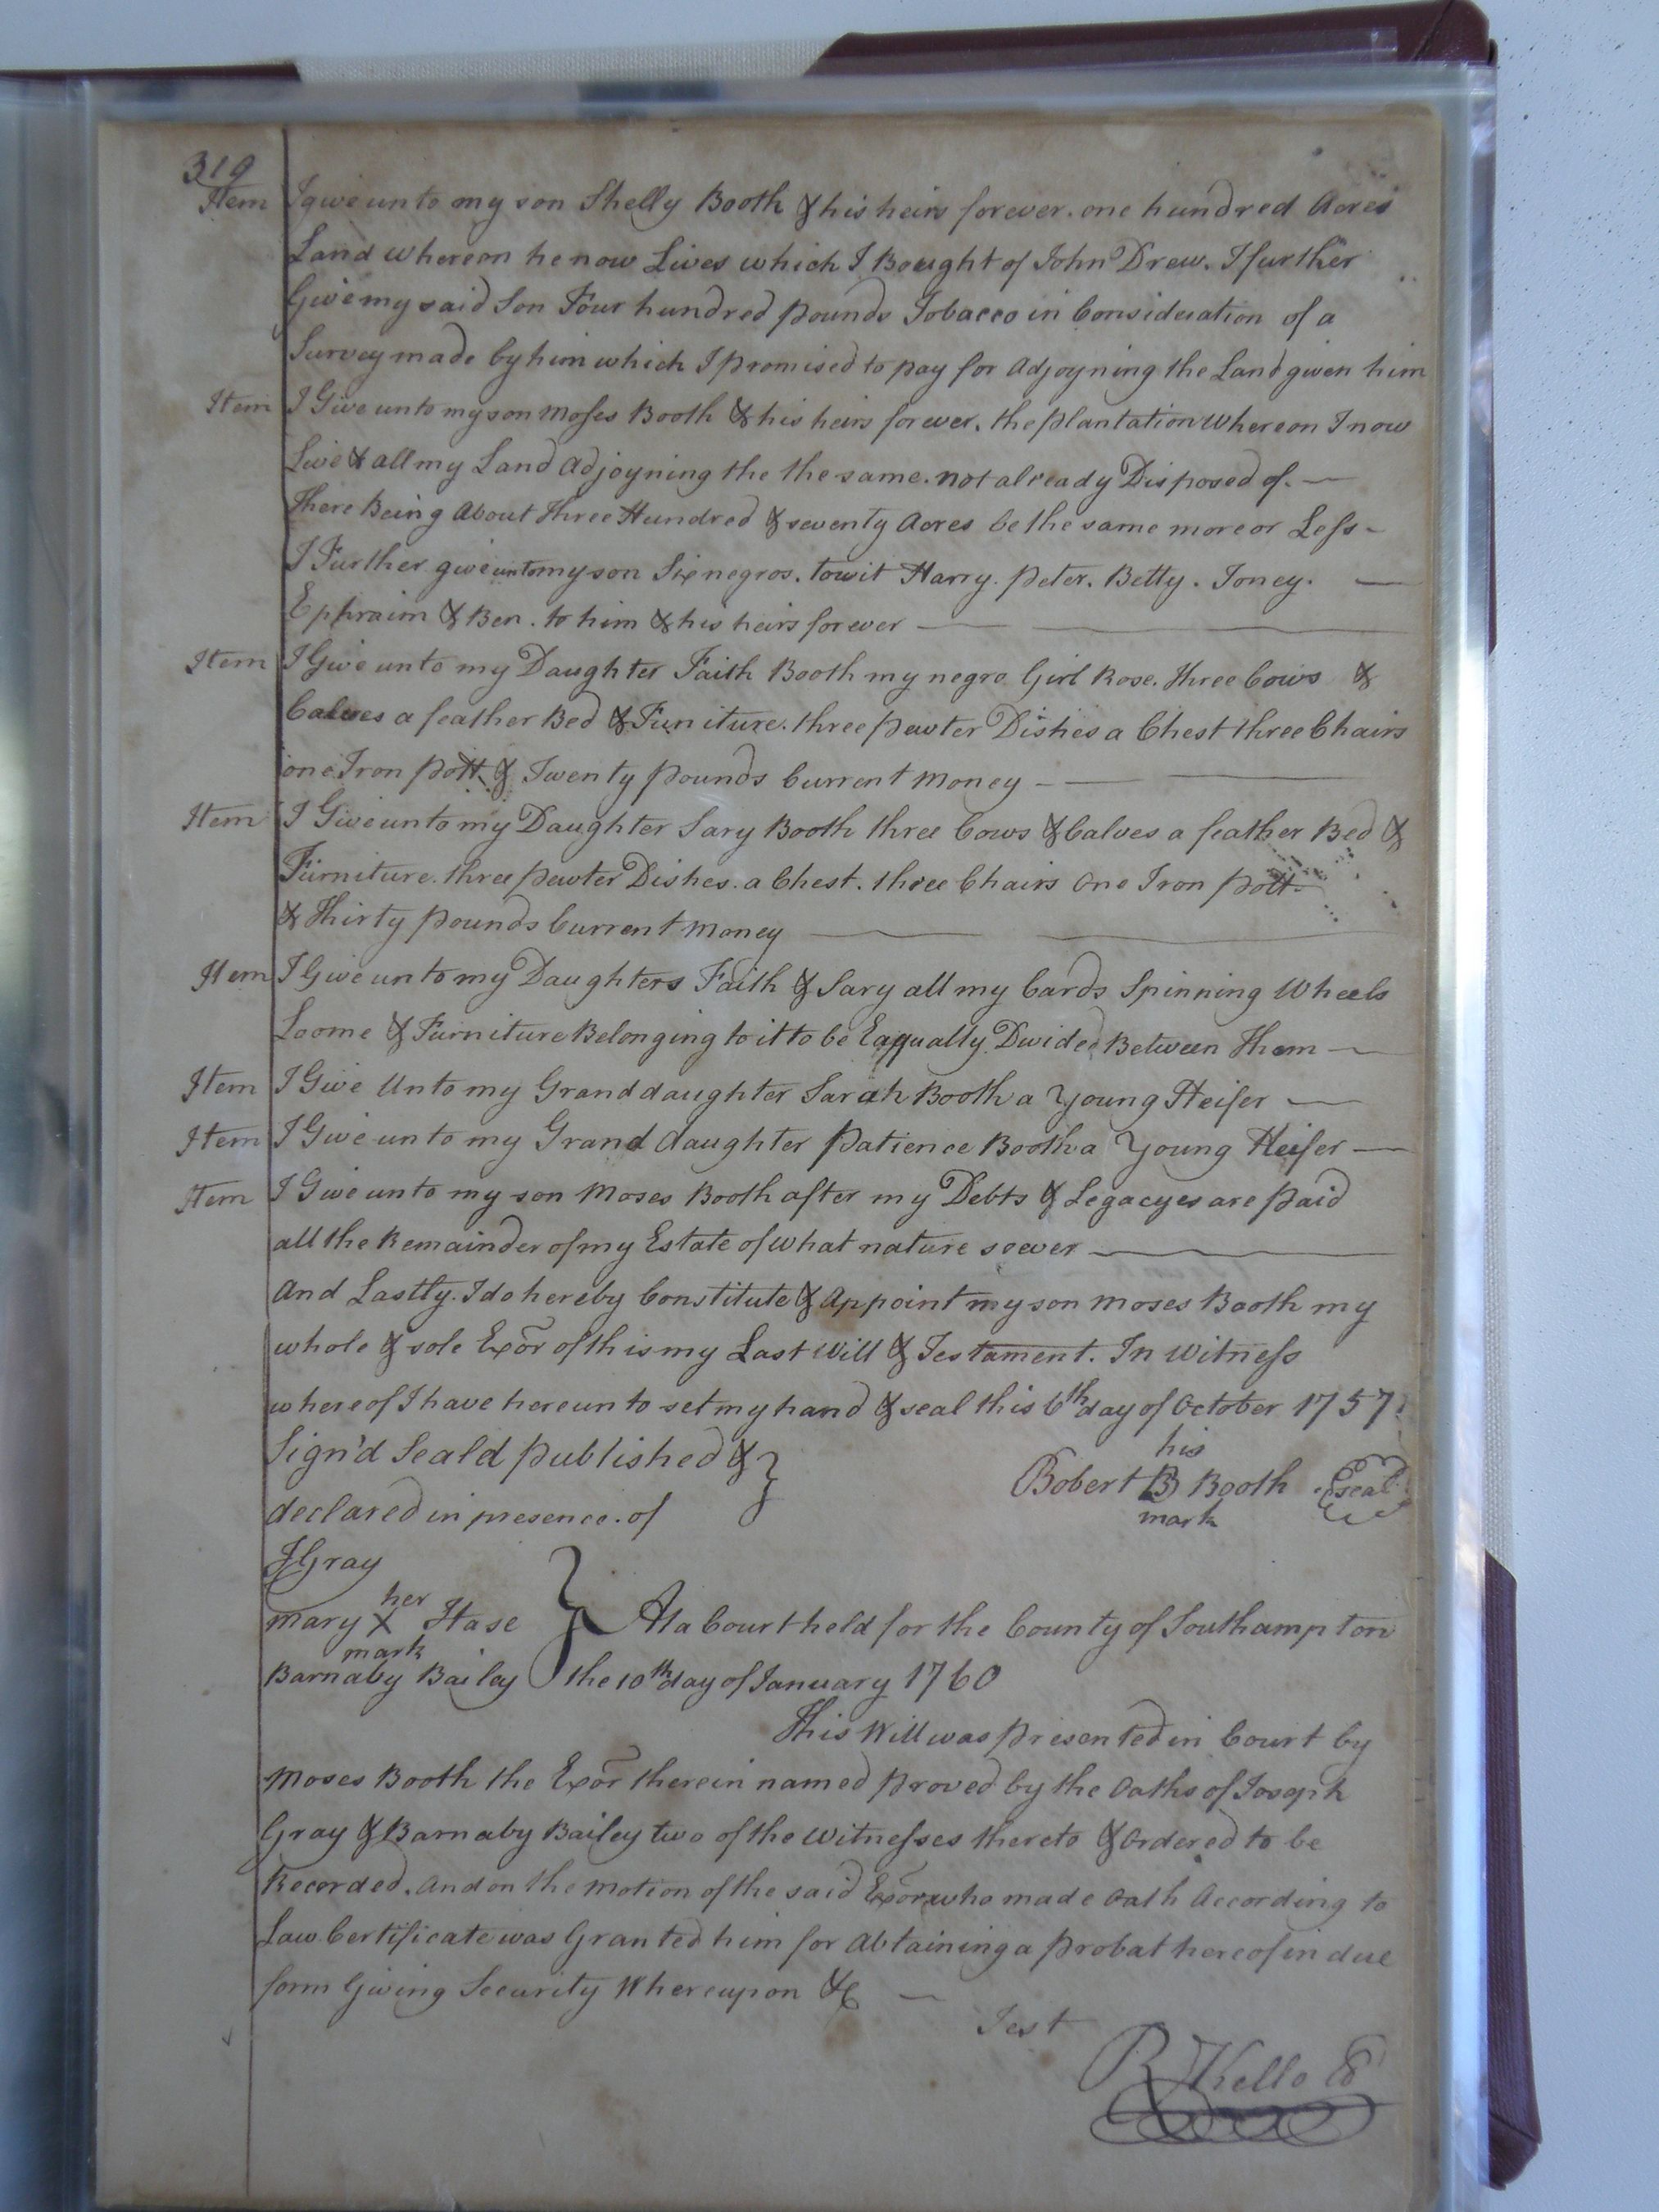 319
Item I give unto my son Shelly Booth & his heirs forever. one hundred Acres
Land whereon he now Lives which I Bought of John Drew. I further
Give my said Son Four hundred pounds Tobacco in Consideration of a
Survey made by him which I promised to pay for Adjoyning the Land given him
Item I Give unto my son Moses Booth & his heirs forever. the plantation Whereon I now
Live & all my Land Adjoyning the the same. not already Disposed of. —
There Being About Three Hundred & seventy Acres be the same more or Less -
I Further give unto my son Six negros. towit Harry. Peter. Betty. Toney. —
Ephraim & Ben. to him & his heirs forever —
Item I Give unto my Daughter Faith Booth my negro Girl Rose. Three Cows &
Calves a feather Bed & Funiture. three pewter Dishes a Chest three Chairs
one Iron pott & Twenty pounds Current Money —
Item I Give unto my Daughter Sary Booth three Cows & Calves a feather Bed &
Furniture. three pewter Dishes. a Chest. three Chairs One Iron pott
& Thirty pounds Current Money —
Item I Give unto my Daughters Faith & Sary all my Cards Spinning Wheels
Loome & Furniture Belonging to it to be Eaqually Divided Between Them —
Item I Give Unto my Granddaughter Sarah Booth a Young Heifer —
Item I Give unto my Grand daughter Patience Booth a Young Heifer —
Item I Give unto my son Moses Booth after my Debts & Legacyes are paid
all the Remainder of my Estate of what nature soever —
And Lastly. I do hereby Constitute & Appoint my son Moses Booth my
whole & sole Exor of this my Last Will & Testament. In Witness
whereof I have hereunto set my hand & seal this 6th day of October 1757
his
Sign'd Seald published & }
Robert B Booth seal
mark
declared in presence. of
J Gray
her
Mary X Hase } At a Court held for the County of Southampton
mark
Barnaby Bailey the 10th day of January 1760
This Will was presented in Court by
Moses Booth the Exor therein named proved by the Oaths of Joseph
Gray & Barnaby Bailey two of the Witnesses thereto & Ordered to be
Recorded. And on the Motion of the said Exor who made Oath According to
Law Certificate was Granted him for Abtaining a probat hereof in due
form Giving Security Whereupon &c —
Test
R Kello